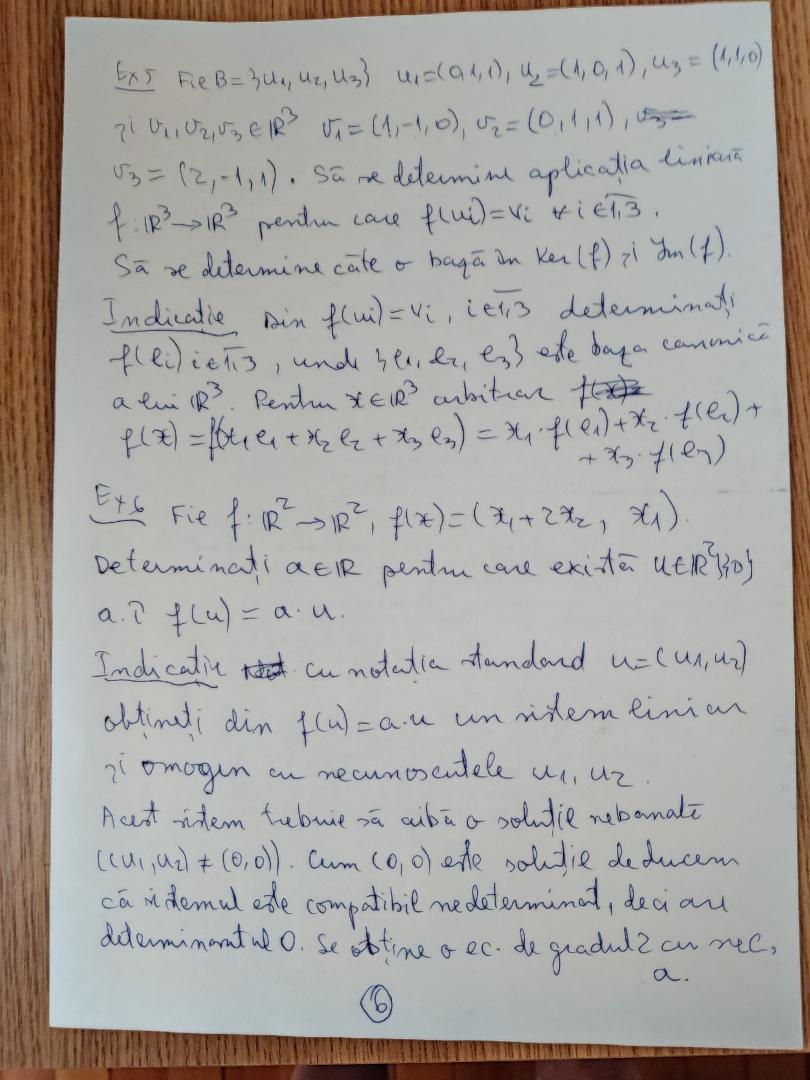 Ex5 Fie B={u1, u2, u3} u1=(0,1,1), u2=(1,0,1), u3=(1,1,0)
și v1,v2,v3∈ℝ³ v1=(1,-1,0), v2=(0,1,1),
v3=(2,-1,1). Să se determine aplicația liniară
f:ℝ³→ℝ³ pentru care f(ui)=vi ∀ i∈1,3.
Să se determine câte o bază în Ker(f) și Im(f).
Indicație Din f(ui)=vi, i∈1,3 determinați
f(ei) i∈1,3, unde {e1, e2, e3} este baza canonică
a lui ℝ³. Pentru x∈ℝ³ arbitrar
f(x)=f(x1e1+x2e2+x3e3)=x1·f(e1)+x2·f(e2)+
+x3·f(e3)
Ex6 Fie f:ℝ²→ℝ², f(x)=(x1+2x2, x1).
Determinați a∈ℝ pentru care există u∈ℝ²\{0}
a.î f(u)=a·u.
Indicație cu notația standard u=(u1,u2)
obțineți din f(u)=a·u un sistem liniar
și omogen cu necunoscutele u1, u2.
Acest sistem trebuie să aibă o soluție nebanală
((u1,u2)≠(0,0)). Cum (0,0) este soluție deducem
că sistemul este compatibil nedeterminat, deci are
determinantul 0. Se obține o ec. de gradul 2 cu nec,
a.
6